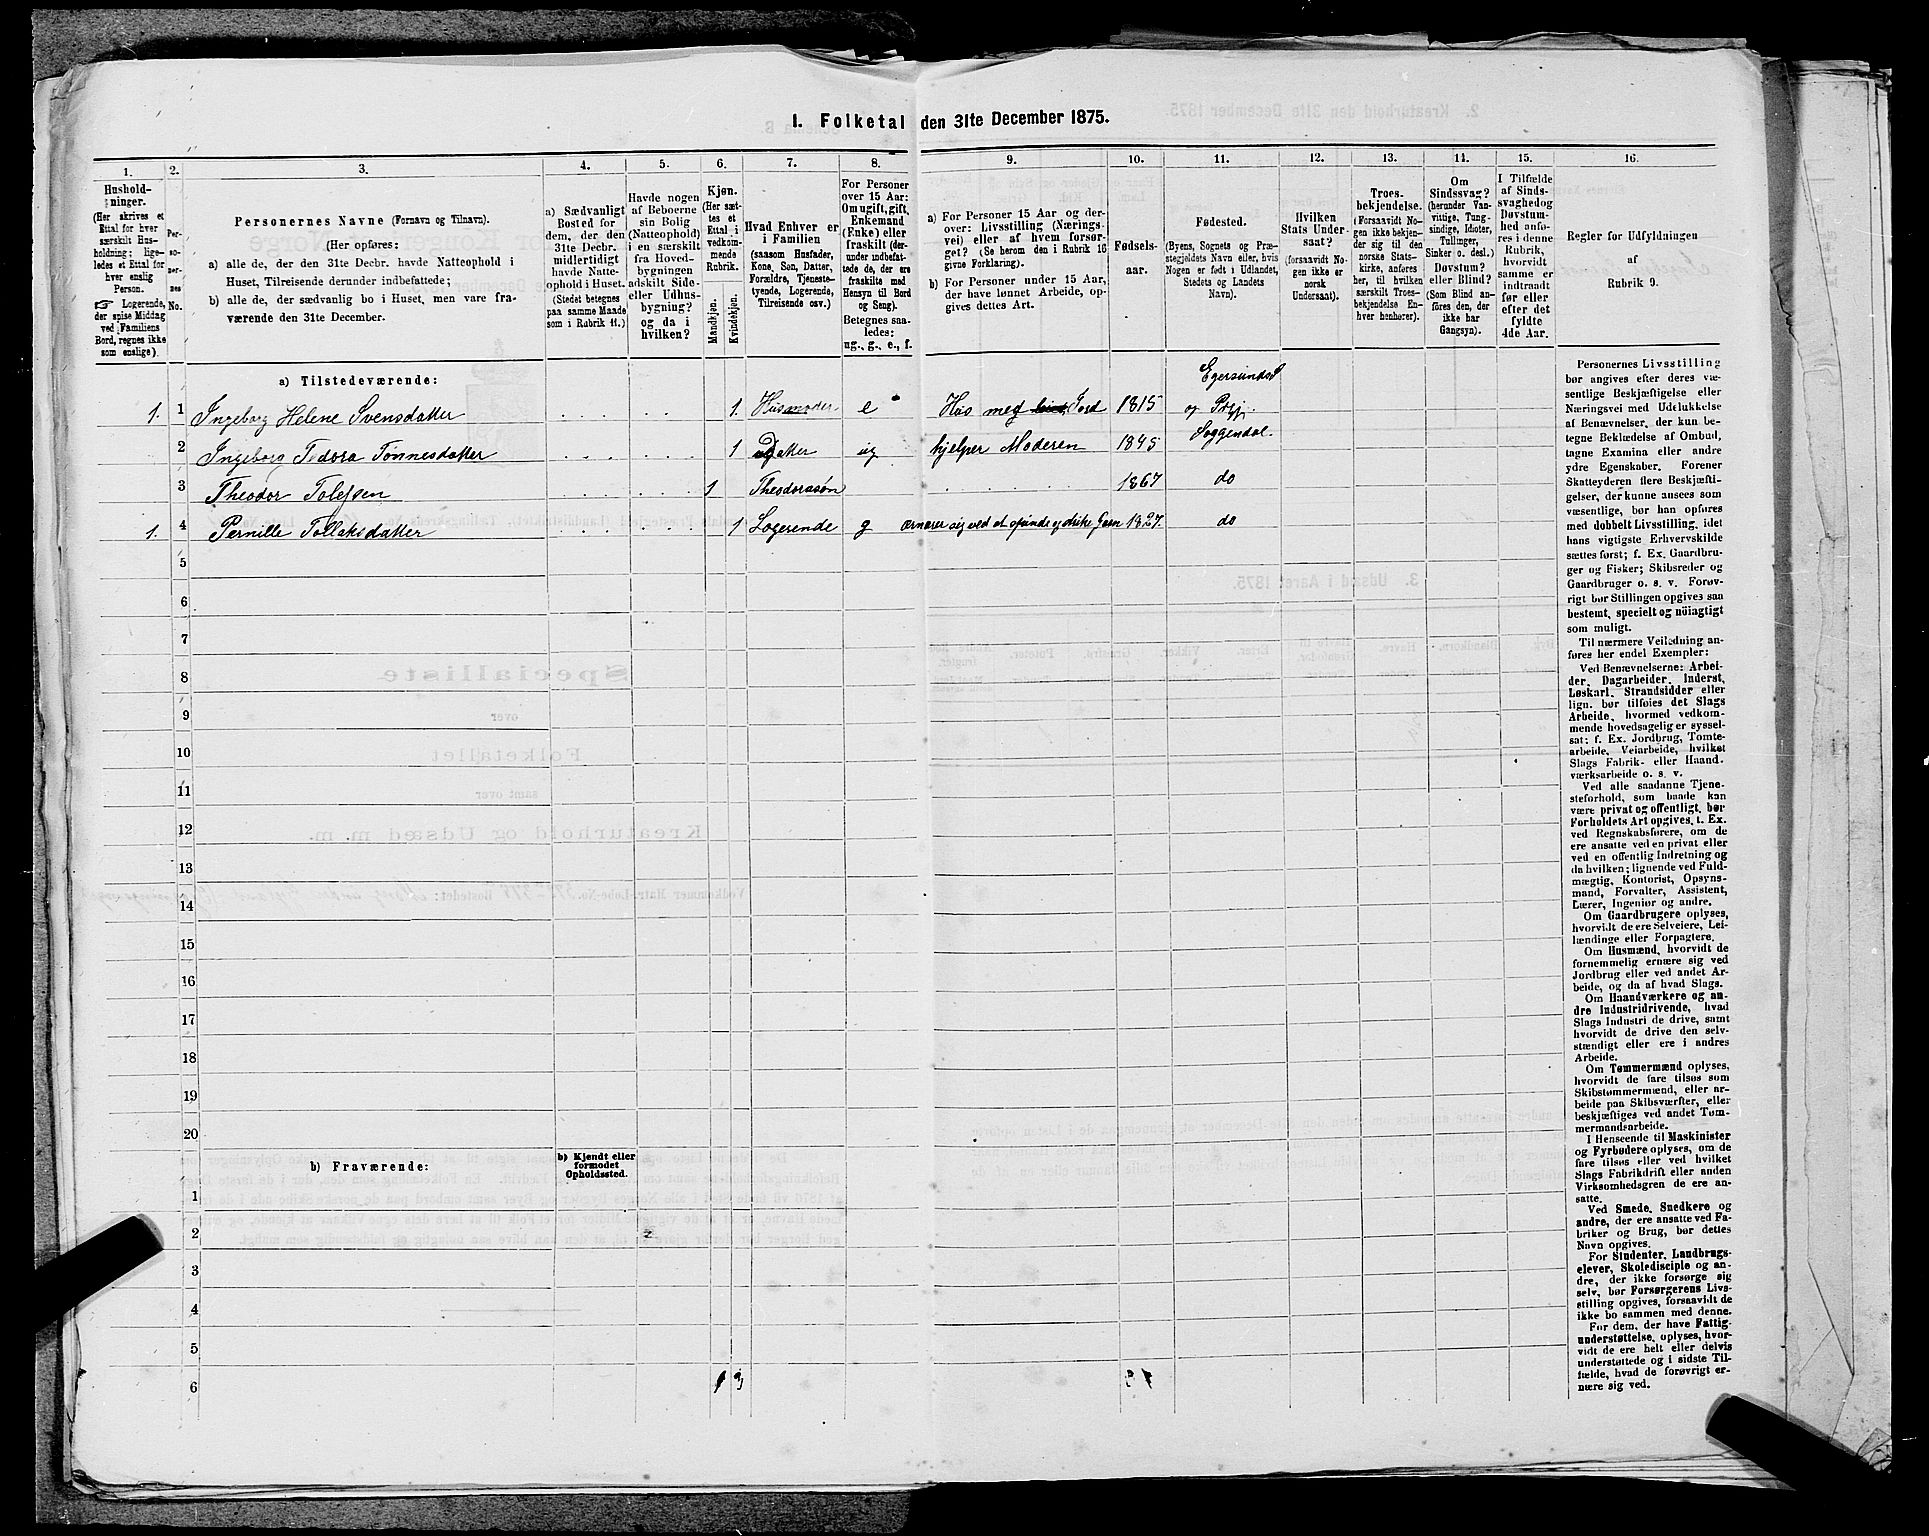 I. Folketal den 31te December 1875.
1.
2.
3.
4.
5.
6.
7.
8.
9.
10.
11.
12.
13.
14.
15.
16.
Hushold-
ninger.
(Her skrives et
Ettal for hver
særskilt Hus-
holdning; lige-
ledes et Ettal for
hver enslig
Person.
☞ Logerende,
der spise Middag
ved Familiens
Bord, regnes ikke
som enslige).
Per-
so-
ner-
nes
No.
Personernes Navne (Fornavn og Tilnavn).
(Her opføres:
a) alle de, der den 31te Decbr. havde Natteophold i
Huset, Tilreisende derunder indbefattede;
b) alle de, der sædvanlig bo i Huset, men vare fra-
værende den 31te December.
a) Sædvanligt
Bosted for
dem, der den
31te Decbr.
midlertidigt
havde Natte-
ophold i Huset.
(Stedet betegnes
paa samme Maade
som i Rubrik 11.)
Havde nogen
af Beboerne
sin Bolig
(Natteophold)
i en særskilt
fra Hoved-
bygningen
adskilt Side-
eller Udhus-
bygning?
og da i
hvilken?
Kjøn.
(Her sæt-
tes et
Ettal i
vedkom-
mende
Rubrik.
Mandkjøn.
Kvindekjøn.
Hvad Enhver er
i Familien
(saasom Husfader,
Kone, Søn, Datter,
Forældre, Tjeneste-
tyende, Logerende,
Tilreisende osv.)
For Personer
over 15 Aar:
Om ugift, gift,
Enkemand
(Enke) eller
fraskilt (der-
under indbefat-
tede de, der ere
fraskilte med
Hensyn til Bord
og Seng).
Betegnes saa-
ledes:
ug., g., e., f.
a) For Personer 15 Aar og der-
over: Livsstilling (Nærings-
vei) eller af hvem forsør-
get? (Se herom den i Rubrik 16
givne Forklaring).
b) For Personer under 15 Aar,
der have lønnet Arbeide, op-
gives dettes Art.
Fødsels-
aar.
Fødested.
(Byens, Sognets og Præ-
stegjeldets Navn eller, hvis
Nogen er født i Udlandet,
Stedets og Landets
Navn).
Hvilken
Stats Under-
saat?
(forsaavidt No-
gen ikke er
norsk
Undersaat).
Troes-
bekjendelse.
(Forsaavidt No-
gen ikke bekjen-
der sig til den
norske Stats-
kirke, anføres
her, til hvilken
særskilt Troes-
bekjendelse En-
hver henhører).
Om
Sindssvag?
(herunder Van-
vittige, Tung-
sindige, Idioter,
Tullinger,
Sinker o. desl.)
Døvstum?
eller Blind?
(Som Blind an-
føres den, der
ikke har
Gangsyn).
I Tilfælde
af Sinds-
svaghed og
Døvstum-
hed anfø-
res i denne
Rubrik,
hvorvidt
samme er
indtraadt
før eller
efter det
fyldte
4de Aar.
Regler for Udfyldningen
af
Rubrik 9.
a) Tilstedeværende:
Egersunds
1. 1 Ingeborg Helene Svensdatter 1. Husmoder e Hus med Jord 1815 og Prgj.
2 Ingeborg Tedora Tønnesdatter 1 Datter ug hjelper Moderen 1845 Soggendal.
3 Theodor Tolefsen 1 Theodorasøn 1867 do
1. 4 Pernille Tollaksdatter 1 Logerende g ærnærer sig ved at spinde og strike Garn 1827. do
5
6
7
8
9
10
11
12
13
14
15
16
17
18
19
20
b) Fraværende:
b) Kjendt eller
formodet
Opholdssted.
1
2
3
4
5
6
1 3
Personernes Livsstilling
bør angives efter deres væ-
sentlige Beskjæftigelse eller
Næringsvei med Udelukkelse
af Benævnelser, der kun be-
tegne Beklædelse af Ombud,
tagne Examina eller andre
ydre Egenskaber. Forener
Skatteyderen flere Beskjæfti-
gelser, der kunne ansees som
væsentlige, bør han opføres
med dobbelt Livsstilling, idet
hans vigtigste Erhvervskilde
sættes først; f. Ex. Gaardbru-
ger og Fisker; Skibsreder og
Gaardbruger o. s. v. Forøv-
rigt bør Stillingen opgives saa
bestemt, specielt og nöiagtigt
som muligt.
Til nærmere Veiledning an-
føres her endel Exempler:
Ved Benævnelserne: Arbei-
der, Dagarbeider, Inderst,
Løskarl, Strandsidder eller
lign. bør tilføies det Slags
Arbeide, hvormed vedkom-
mende hovedsagelig er syssel-
sat; f. Ex. Jordbrug, Tomte-
arbeide, Veiarbeide, hvilket
Slags Fabrik- eller Haand-
værksarbeide o. s. v.
Ved alle saadanne Tjene-
steforhold, som baade kan
være privat og offentligt, bør
Forholdets Art opgives, t. Ex.
ved Regnskabsførere, om de
ere ansatte ved en privat eller
ved en offentlig Indretning og
da hvilken; lignende ved Fuld-
mægtig, Kontorist, Opsyns-
mand, Forvalter, Assistent,
Lærer, Ingeniør og andre.
Om Gaardbrugere oplyses,
hvorvidt de ere Selveiere, Lei-
lændinge eller Forpagtere.
Om Husmænd, hvorvidt de
fornemmelig ernære sig ved
Jordbrug eller ved andet Ar-
beide, og da af hvad Slags.
Om Haandværkere og an-
dre Industridrivende, hvad
Slags Industri de drive, samt
hvorvidt de drive den selv-
stændigt eller ere i andres
Arbeide.
Om Tømmermænd oplyses,
hvorvidt de fare tilsøs som
Skibstømmermænd, eller ar-
beide paa Skibsværfter, eller
beskjæftiges ved andet Tøm-
mermandsarbeide.
I Henseende til Maskinister
og Fyrbødere oplyses, om de
fare tilsøs eller ved hvilket
Slags Fabrikdrift eller anden
Virksomhedsgren de ere an-
satte.
Ved Smede, Snedkere og
andre, der ere ansatte ved Fa-
briker og Brug, bør dettes
Navn opgives.
For Studenter, Landbrugs-
elever, Skoledisciple og an-
dre, der ikke forsørge sig
selv, bør Forsørgerens Livs-
stilling opgives, forsaavidt de
ikke bo sammen med denne.
For dem, der have Fattig-
understøttelse, oplyses, hvor-
vidt de ere helt eller delvis
understøttede og i sidste Til-
fælde, hvad de forøvrigt er-
nære sig ved.